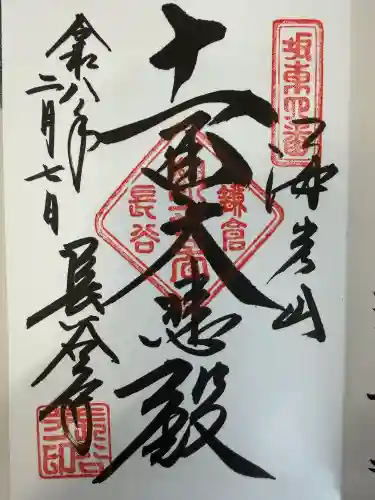 坂東四番
海光山
十一面大悲殿
鎌倉
長谷
長谷寺
令和八年
二月七日